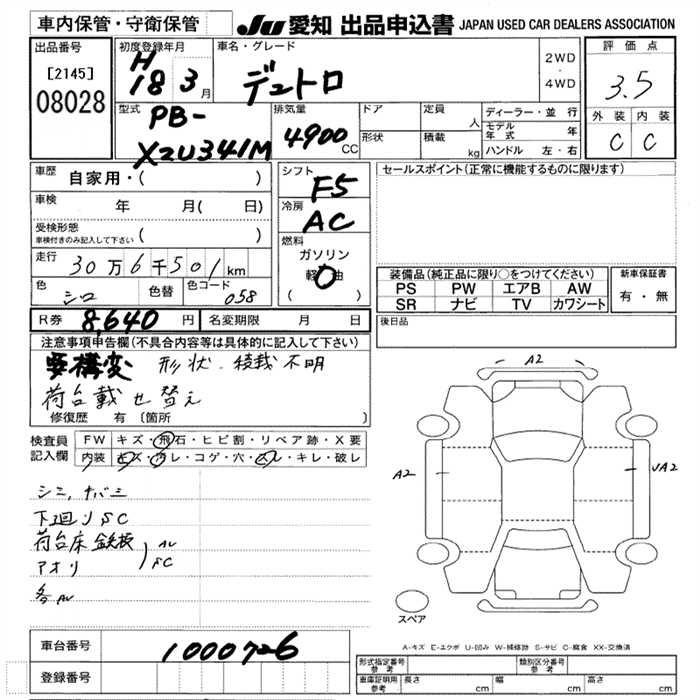 車内保管・守衛保管
JU 愛知 出品申込書 JAPAN USED CAR DEALERS ASSOCIATION
出品番号
[2145]
08028
初度登録年月
H
18 3月
車名・グレード
デュトロ
2WD
・
4WD
評価点
3.5
外装 内装
C C
型式
PB-
XZU341M
排気量
4900cc
ドア
形状
定員 人
積載 kg
ディーラー・並行
モデル年式 年
ハンドル 左・右
車歴 自家用・( )
車検 年 月( 日)
受検形態
車検付きのみ記入して下さい ( )
走行 30万6千501km
色 シロ 色替 色コード 058
シフト F5
冷房 AC
燃料
ガソリン
軽油
( )
セールスポイント(正常に機能するものに限ります)
装備品(純正品に限り○をつけてください)
PS PW エアB AW
SR ナビ TV カワシート
新車保証書
有・無
R券 8,640円 名変期限 月 日
後日品
注意事項申告欄(不具合内容等は具体的に記入して下さい)
要構変 形状、積載不明
荷台載せ替え
修復歴 有 〔箇所 〕
検査員記入欄
FW キズ・飛石・ヒビ割・リペア跡・X要
内装 キズ・汚レ・コゲ・穴・スレ・キレ・破レ
下廻りSC
荷台床鉄板 AU
アオリ SC
各AU
A2
A2
A2
スペア
A-キズ E-エクボ U-凹み W-補修跡 S-サビ C-腐食 XX-交換済
車台番号 1000726
登録番号
形式指定番号 参考
類別区分番号 参考
車庫証明用 参考 長さ cm 幅 cm 高さ cm